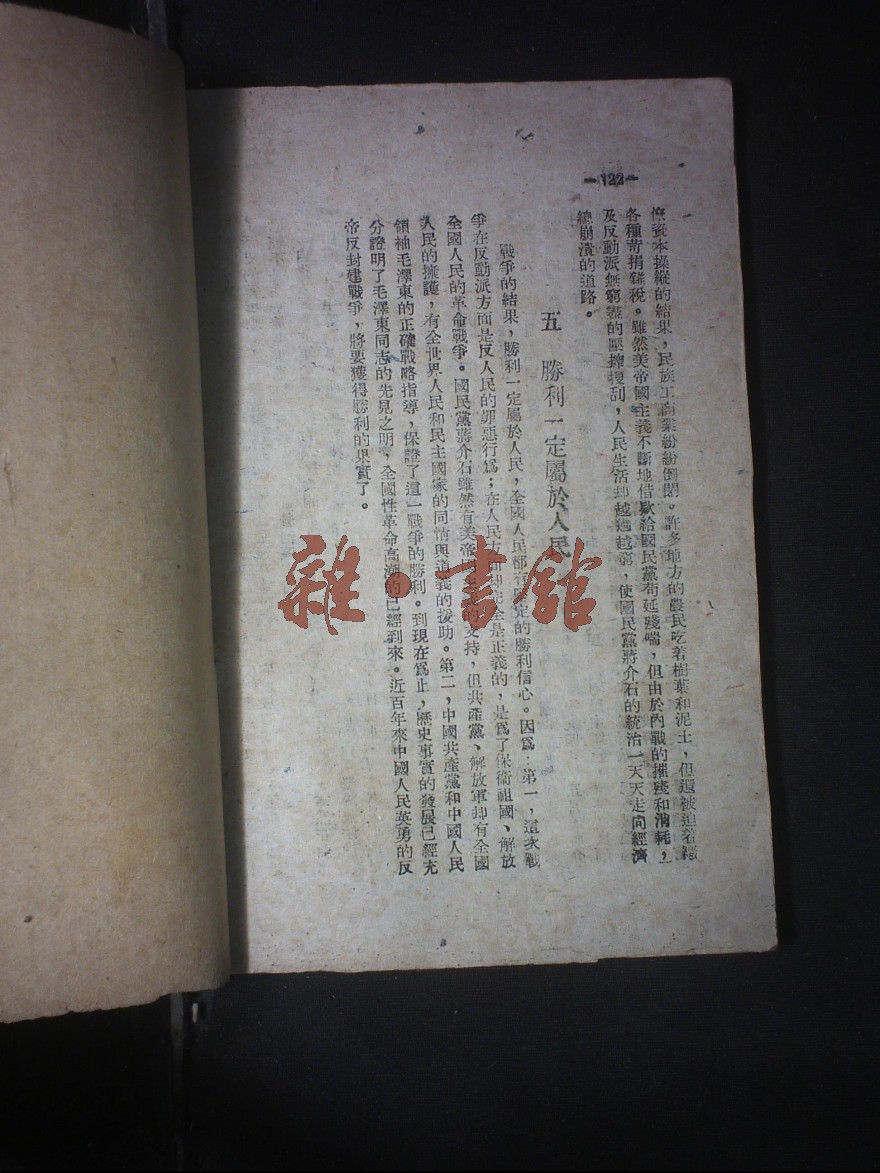 —122—
僚資本操縱的結果，民族工商業紛紛倒閉。許多地方的農民吃着樹葉和泥土，但還被迫着繳
各種苛捐雜稅。雖然美帝國主義不斷地借欵給國民黨苟延殘喘，但由於內戰的摧殘和消耗，
及反動派無窮盡的壓搾搜刮，人民生活却越過越窮，使國民黨蔣介石的統治一天天走向經濟
總崩潰的道路。
五　勝利一定屬於人民
戰爭的結果，勝利一定屬於人民，全國人民都有定的勝利信心。因爲：第一，這次戰
爭在反動派方面是反人民的罪惡行爲；在人民方面却完全是正義的，是爲了保衛祖國、解放
全國人民的革命戰爭。國民黨蔣介石雖然有美帝的支持，但共產黨、解放軍却有全國
人民的擁護，有全世界人民和民主國家的同情與道義的援助。第二，中國共產黨和中國人民
領袖毛澤東的正確戰略指導，保證了這一戰爭的勝利。到現在爲止，歷史事實的發展已經充
分證明了毛澤東同志的先見之明，全國性革命高潮的已經到來。近百年來中國人民英勇的反
帝反封建戰爭，將要獲得勝利的果實了。
雜·書館